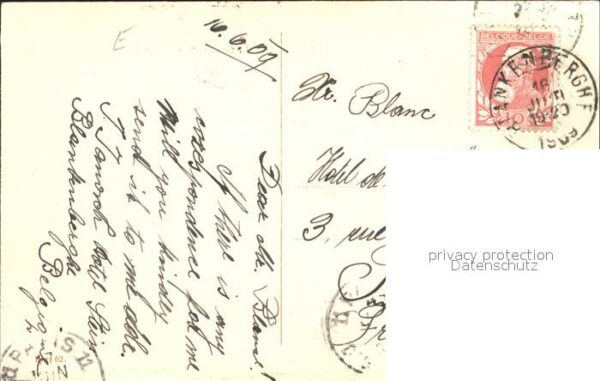 E
16.6.09
Dear Mr. Blanc!
If there is any
correspondence for me
Will you kindly
send it to me adr.
Hotel Stein
Blankenberghe
Belgique
Hr. Blanc
Hotel de
3, rue
BELGIQUE-BELGIË
BLANKENBERGHE
16
JUIN
1909
privacy protection
Datenschutz
PARIS
62